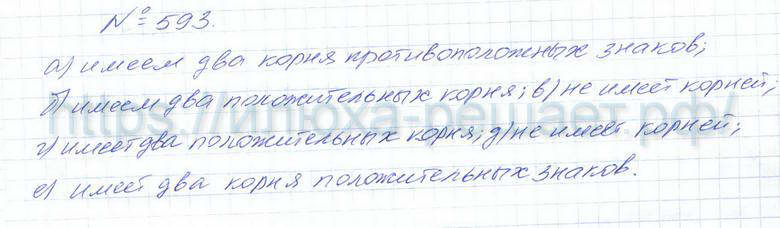 № 593.
а) имеем два корня противоположных знаков;
б) имеем два положительных корня; в) не имеет корней;
https://илюха-решает.рф/
г) имеет два положительных корня; д) не имеет корней;
е) имеет два корня положительных знаков.